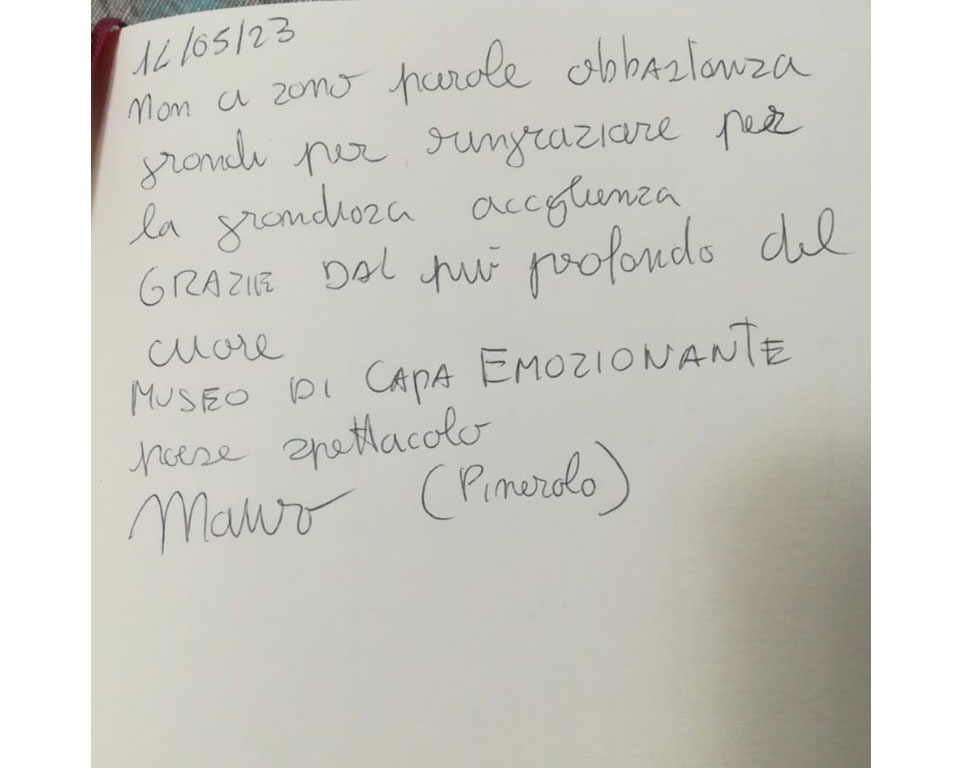 14/05/23
Non ci sono parole abbastanza
grandi per ringraziare per
la grandiosa accoglienza
GRAZIE DAL più profondo del
cuore
MUSEO DI CAPA EMOZIONANTE
paese spettacolo
Mauro (Pinerolo)